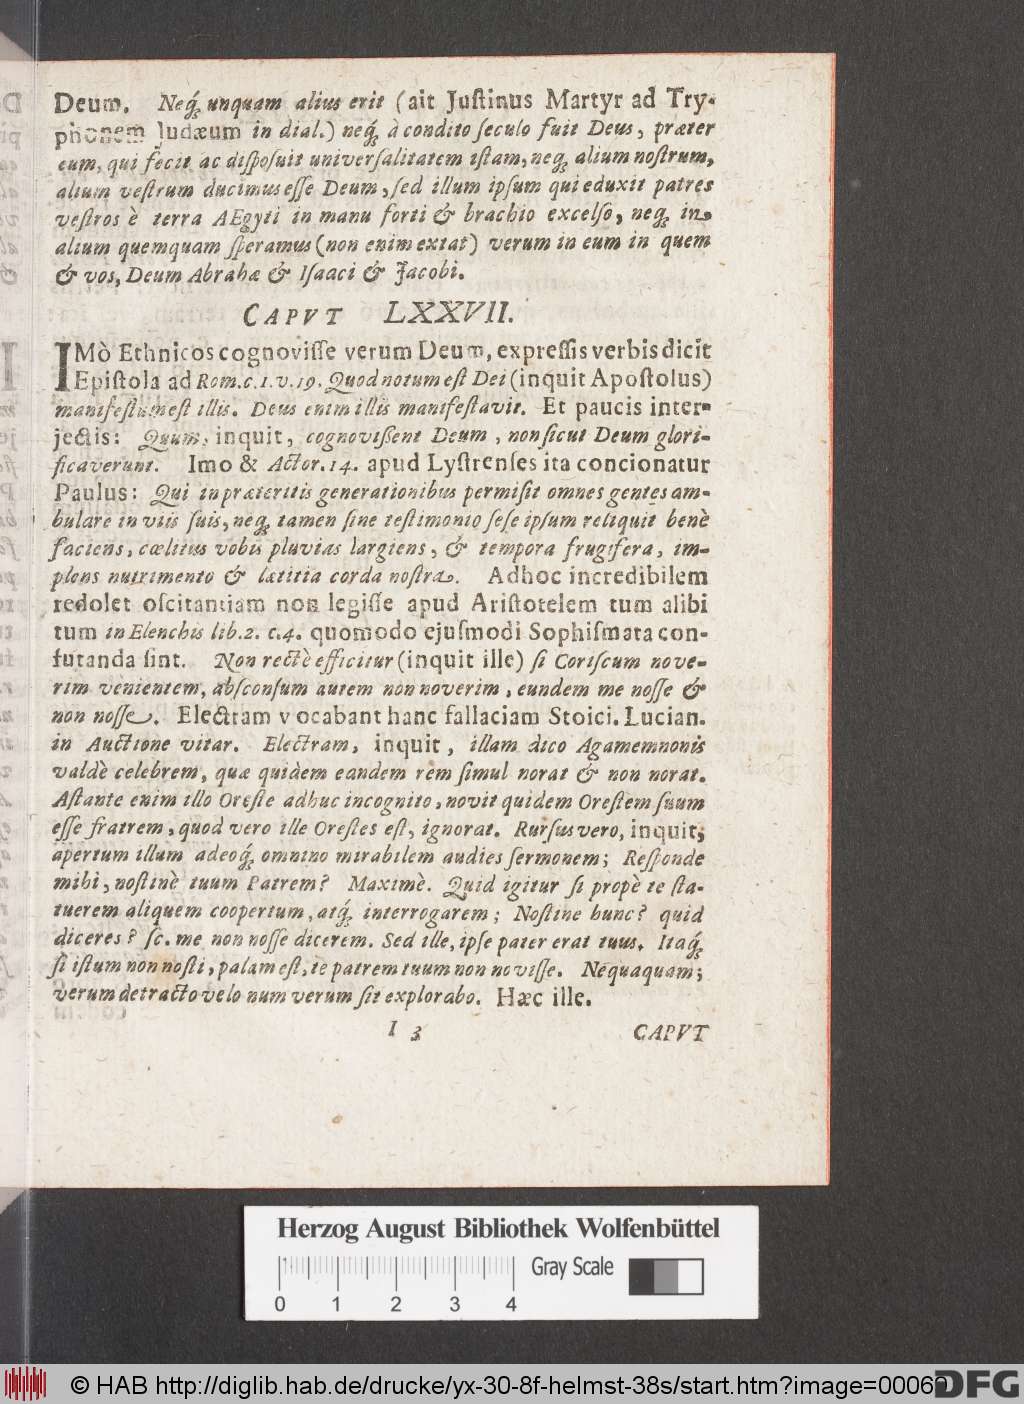 Deum. Neq́; unquam alius erit (ait Juſtinus Martyr ad Try-
phonem Judæum in dial.) neq́; à condito ſeculo fuit Deus, præter
eum, qui fecit ac diſpoſuit univerſalitatem iſtam, neq; alium noſtrum,
alium veſtrum ducimus eſſe Deum, ſed illum ipſum qui eduxit patres
veſtros è terra AEgyti in manu forti & brachio excelſo, neq; in
alium quemquam ſperamus (non enim extat) verum in eum in quem
& vos, Deum Abrahæ & Iſaaci & Jacobi.
CAPVT LXXVII.
IMò Ethnicos cognoviſſe verum Deum, expreſſis verbis dicit
Epiſtola ad Rom. c. 1. v. 19. Quod notum eſt Dei (inquit Apoſtolus)
manifeſtum eſt illis. Deus enim illis manifeſtavit. Et paucis inter-
jectis: Quum, inquit, cognovißent Deum, non ſicut Deum glori-
ficaverunt. Imo & Actor. 14. apud Lyſtrenſes ita concionatur
Paulus: Qui in præteritis generationibus permiſit omnes gentes am-
bulare in viis ſuis, neq; tamen ſine teſtimonio ſeſe ipſum reliquit benè
faciens, cœlitus vobis pluvias largiens, & tempora frugifera, im-
plens nutrimento & lætitia corda noſtra. Adhoc incredibilem
redolet oſcitantiam non legiſſe apud Ariſtotelem tum alibi
tum in Elenchis lib. 2. c. 4. quomodo ejuſmodi Sophiſmata con-
futanda ſint. Non rectè efficitur (inquit ille) ſi Coriſcum nove-
rim venientem, abſconſum autem non noverim, eundem me noſſe &
non noſſe. Electram vocabant hanc fallaciam Stoici. Lucian.
in Auctione vitar. Electram, inquit, illam dico Agamemnonis
valdè celebrem, quæ quidem eandem rem ſimul norat & non norat.
Aſtante enim illo Oreſte adhuc incognito, novit quidem Oreſtem ſuum
eſſe fratrem, quod vero ille Oreſtes eſt, ignorat. Rurſus vero, inquit;
apertum illum adeoq́; omnino mirabilem audies ſermonem; Reſponde
mihi, noſtinè tuum Patrem? Maximè. Quid igitur ſi propè te ſta-
tuerem aliquem coopertum, atq́; interrogarem; Noſtine hunc? quid
diceres? ſc. me non noſſe dicerem. Sed ille, ipſe pater erat tuus. Itaq́;
ſi iſtum non noſti, palam eſt, te patrem tuum non noviſſe. Nequaquam;
verum detracto velo num verum ſit explorabo. Hæc ille.
I 3 CAPVT
Herzog August Bibliothek Wolfenbüttel
Gray Scale
0 1 2 3 4
© HAB http://diglib.hab.de/drucke/yx-30-8f-helmst-38s/start.htm?image=00069
DFG